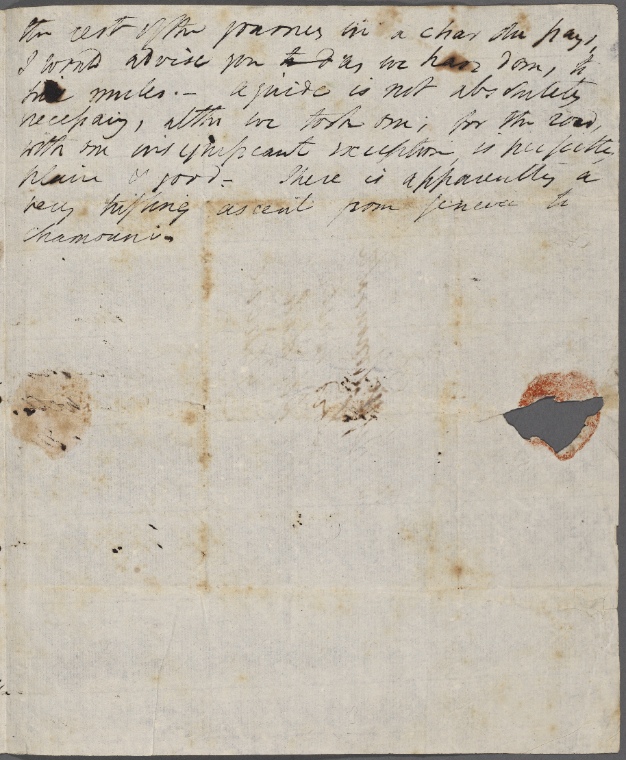 the rest of the journey in a char du pays,
I would advise you to d as we have done, to
hire mules.— A guide is not absolutely
necessary, altho we took one, for the road,
with one insignificant exception, is perfectly
plain & good— There is apparently a
very trifling ascent from Geneva to
Chamouni.